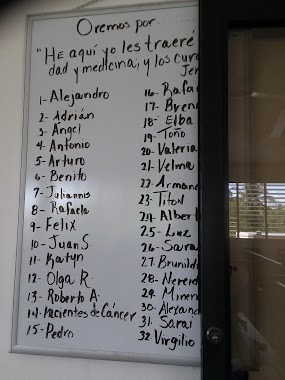 Oremos por
"HE aquí yo les traeré
dad y medicina; y los cura
Jer
1- Alejandro
2- Adrián
3- Ángel
4- Antonio
5- Arturo
6- Benito
7- Juliannis
8- Rafaela
9- Felix
10- Juan S.
11- Katyn
12- Olga R.
13- Roberto A.
14- Pacientes de Cáncer
15- Pedro
16- Rafa
17- Bren
18- Elba
19- Toño
20- Valeria
21- Velma
22- Arman
23- Titon
24- Albert
25- Luz
26- Sara
27- Brunild
28- Nereid
29- Miner
30- Alexand
31- Sarai
32- Virgilio